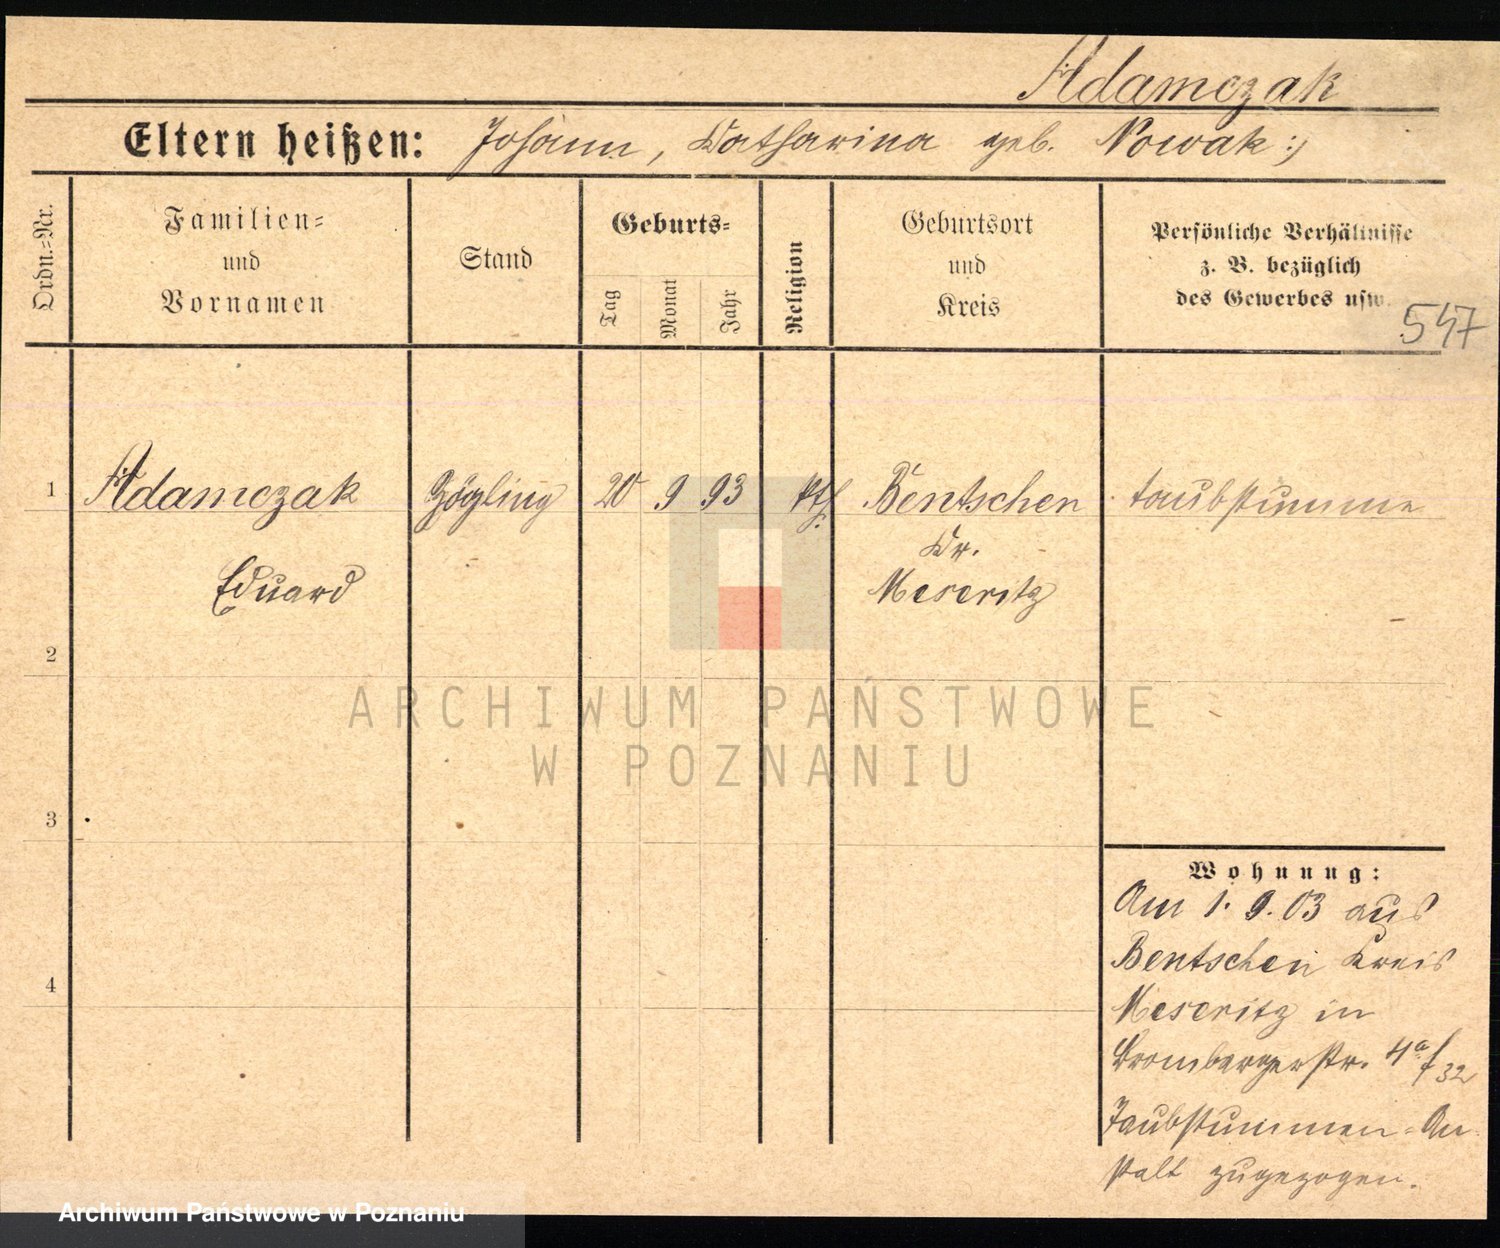 Adamczak
Eltern heißen: Johann, Catharina geb. Nowak :)
Ordn.=Nr.
Familien=
und
Vornamen
Stand
Geburts=
Tag
Monat
Jahr
Religion
Geburtsort
und
Kreis
Persönliche Verhältnisse
z. B. bezüglich
des Gewerbes usw.
547
1 Adamczak Zögling 20 9 93 kth. Bentschen taubstumm
Eduard
Kr.
Meseritz
2
3
4
ARCHIWUM PAŃSTWOWE
W POZNANIU
Wohnung:
Am 1. 9. 03 aus
Bentschen Kreis
Meseritz in
Brombergerstr. 4a/32
Taubstummen-An-
stalt zugezogen.
Archiwum Państwowe w Poznaniu